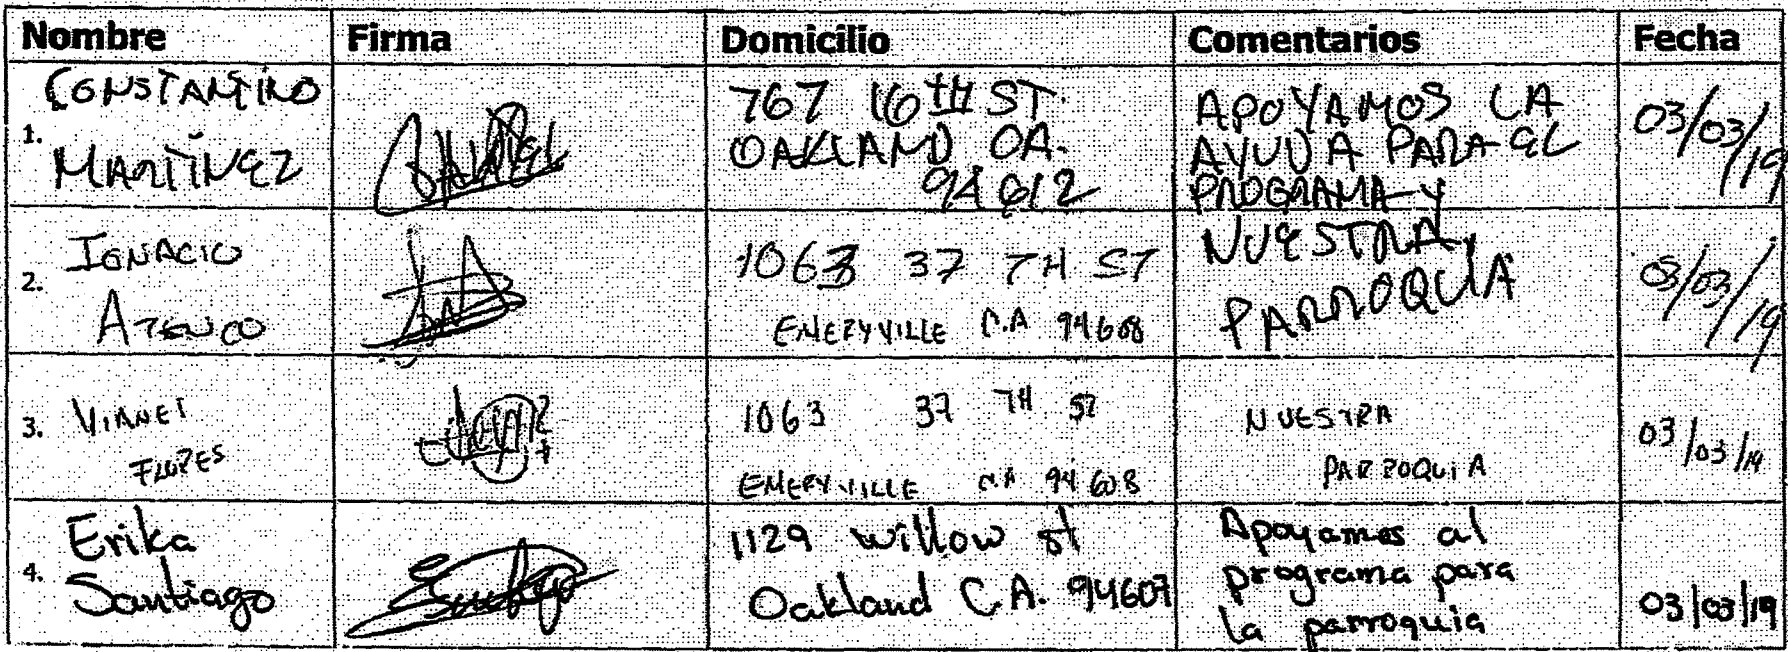 Nombre Firma Domicilio Comentarios Fecha
1. CONSTANTINO MARTÍNEZ
767 16TH ST.
OAKLAND CA.
94612
APOYAMOS LA
AYUDA PARA EL
PROGRAMA Y
NUESTRA
PARROQUIA
03/03/19
2. IGNACIO
ATENCO
1063 37 TH ST
EMERYVILLE C.A 94608
03/03/19
3. VIANET
FLORES
1063 37 TH ST
EMERYVILLE CA 94608
NUESTRA
PARROQUIA
03/03/19
4. Erika
Santiago
1129 willow st
Oakland C.A. 94607
Apoyamos al
programa para
la parroquia
03/03/19